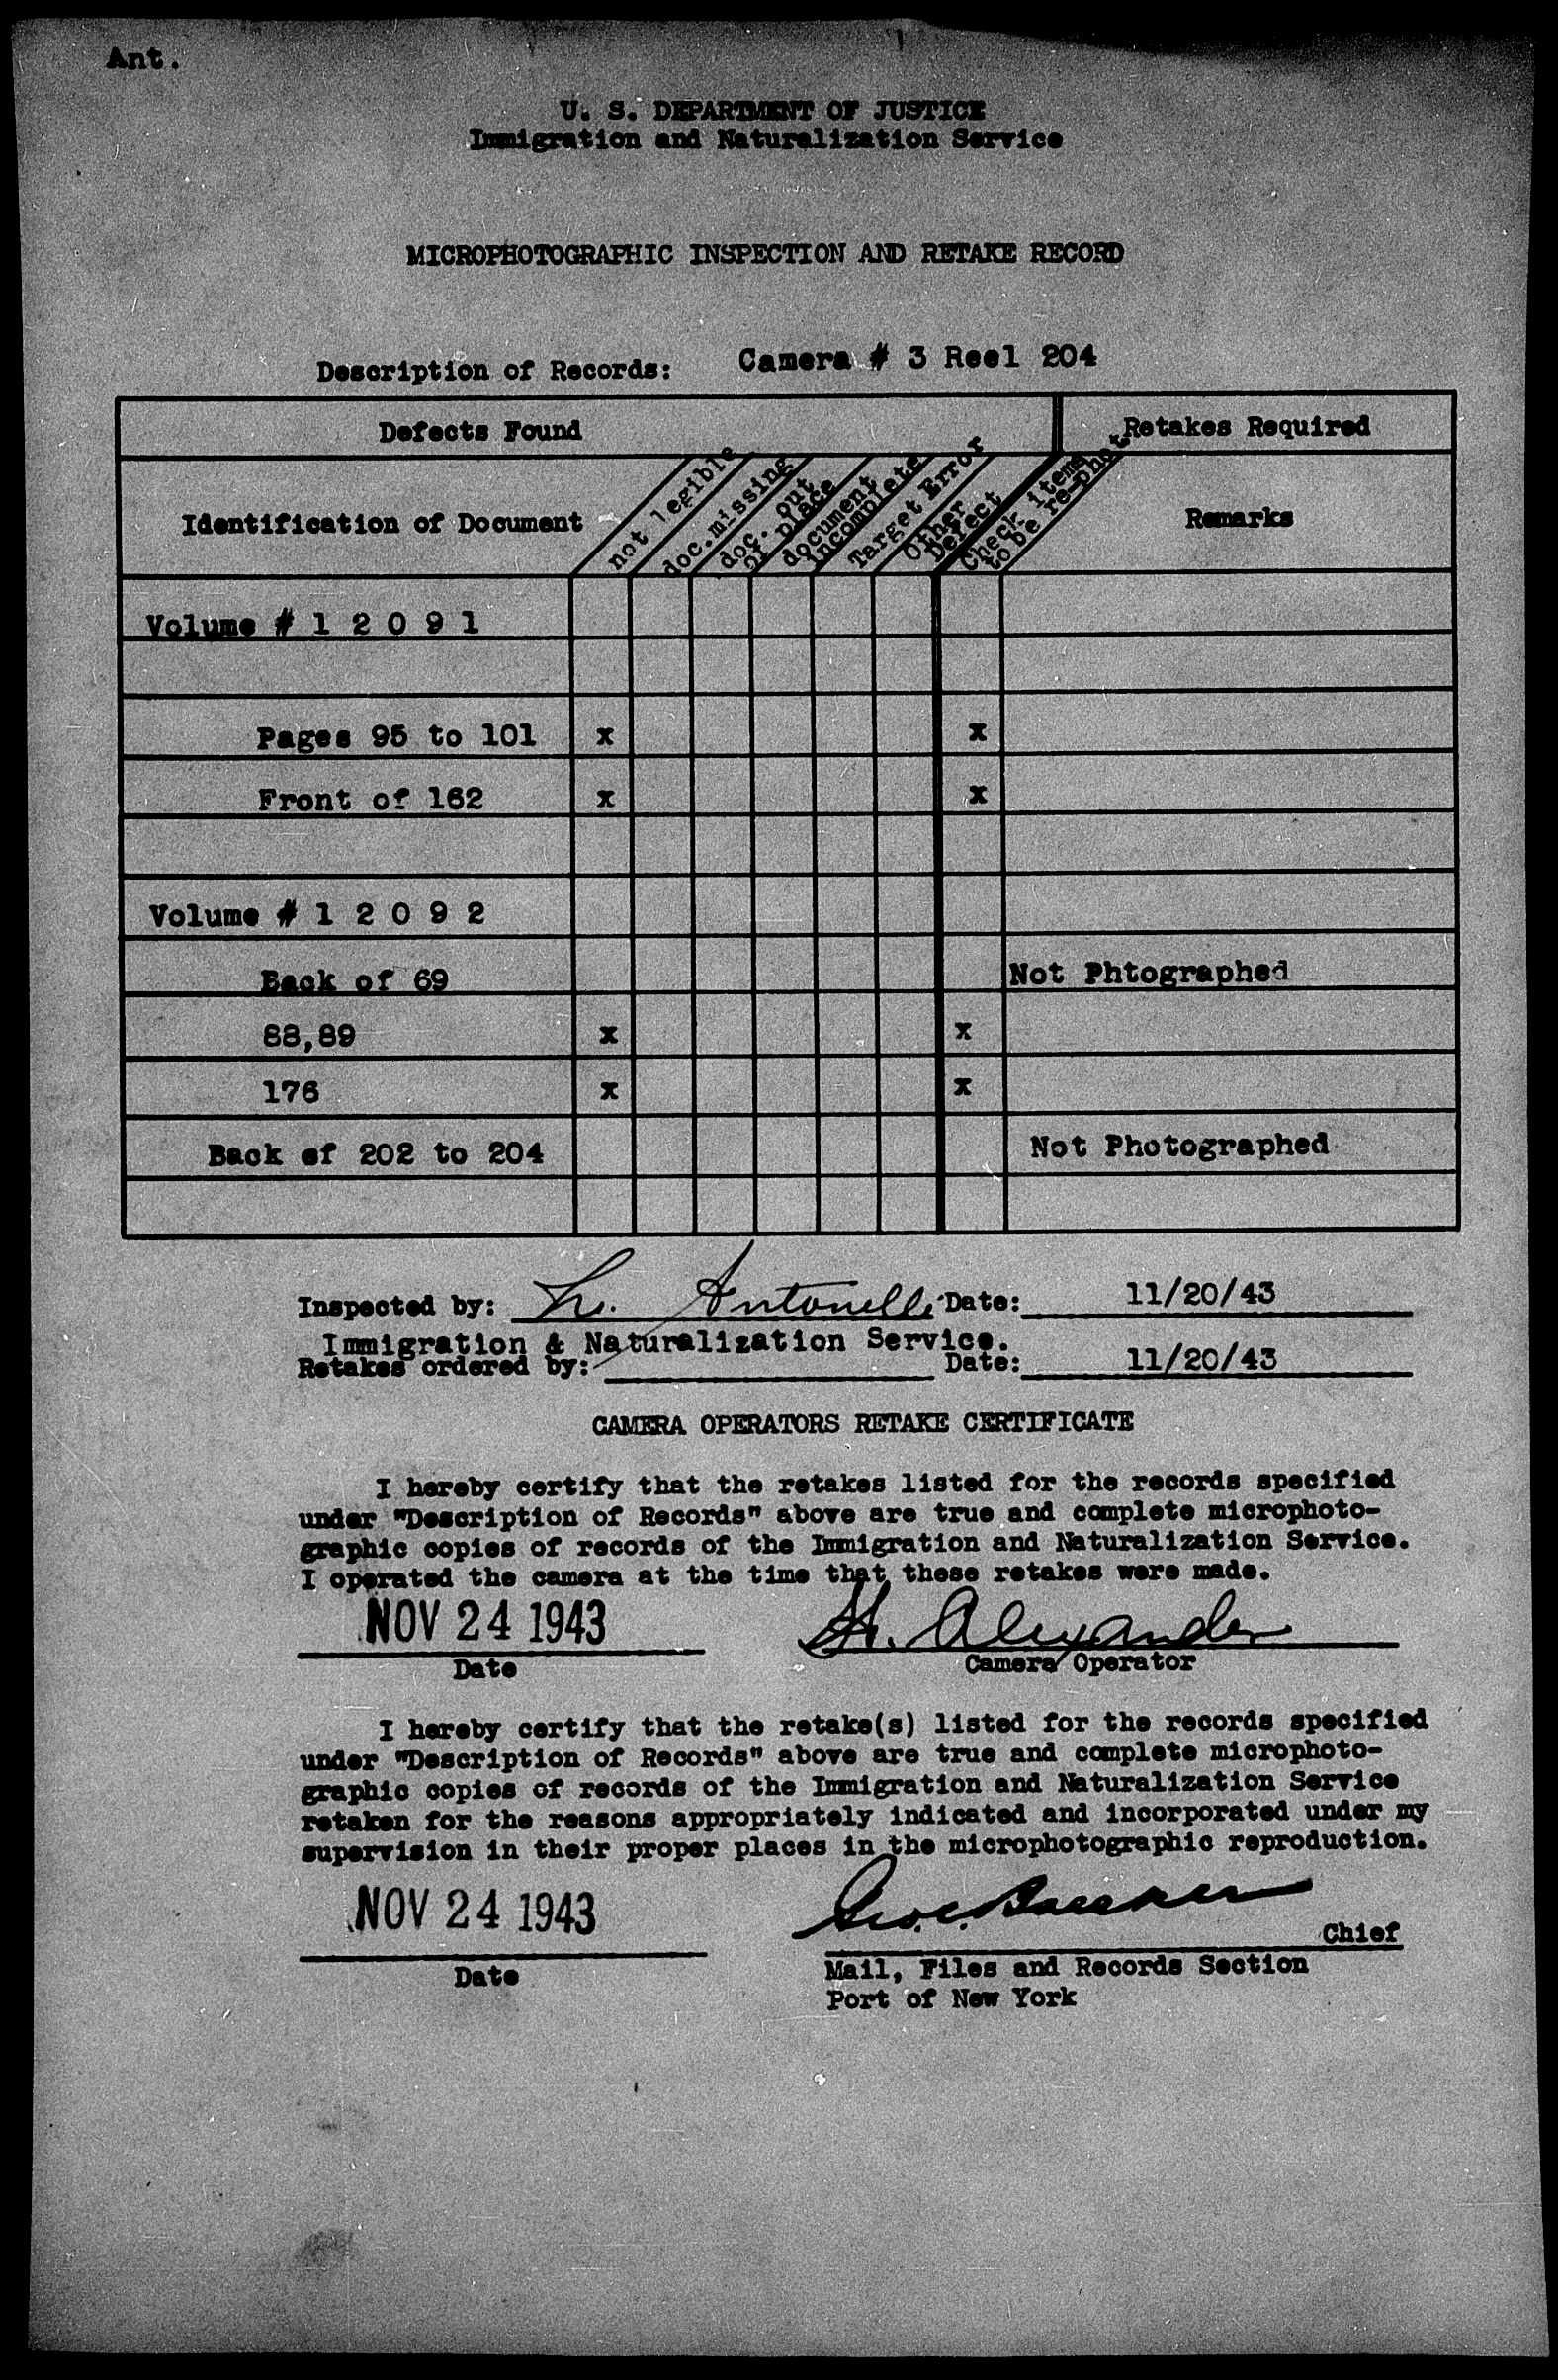 Ant.
U. S. DEPARTMENT OF JUSTICE
Immigration and Naturalization Service
MICROPHOTOGRAPHIC INSPECTION AND RETAKE RECORD
Description of Records: Camera # 3 Reel 204
Defects Found
Retakes Required
Identification of Document
not legible
doc.missing
doc. out
of place
document
incomplete
Target Error
Other
Defect
Check items
to be re-phot
Remarks
Volume # 1 2 0 9 1
Pages 95 to 101 x x
Front of 162 x x
Volume # 1 2 0 9 2
Back of 69 Not Phtographed
88,89 x x
176 x x
Back of 202 to 204 Not Photographed
Inspected by: Antonelli Date: 11/20/43
Immigration & Naturalization Service.
Retakes ordered by: Date: 11/20/43
CAMERA OPERATORS RETAKE CERTIFICATE
I hereby certify that the retakes listed for the records specified
under "Description of Records" above are true and complete microphoto-
graphic copies of records of the Immigration and Naturalization Service.
I operated the camera at the time that these retakes were made.
NOV 24 1943 H. Alexander
Date Camera Operator
I hereby certify that the retake(s) listed for the records specified
under "Description of Records" above are true and complete microphoto-
graphic copies of records of the Immigration and Naturalization Service
retaken for the reasons appropriately indicated and incorporated under my
supervision in their proper places in the microphotographic reproduction.
NOV 24 1943
Chief
Date Mail, Files and Records Section
Port of New York